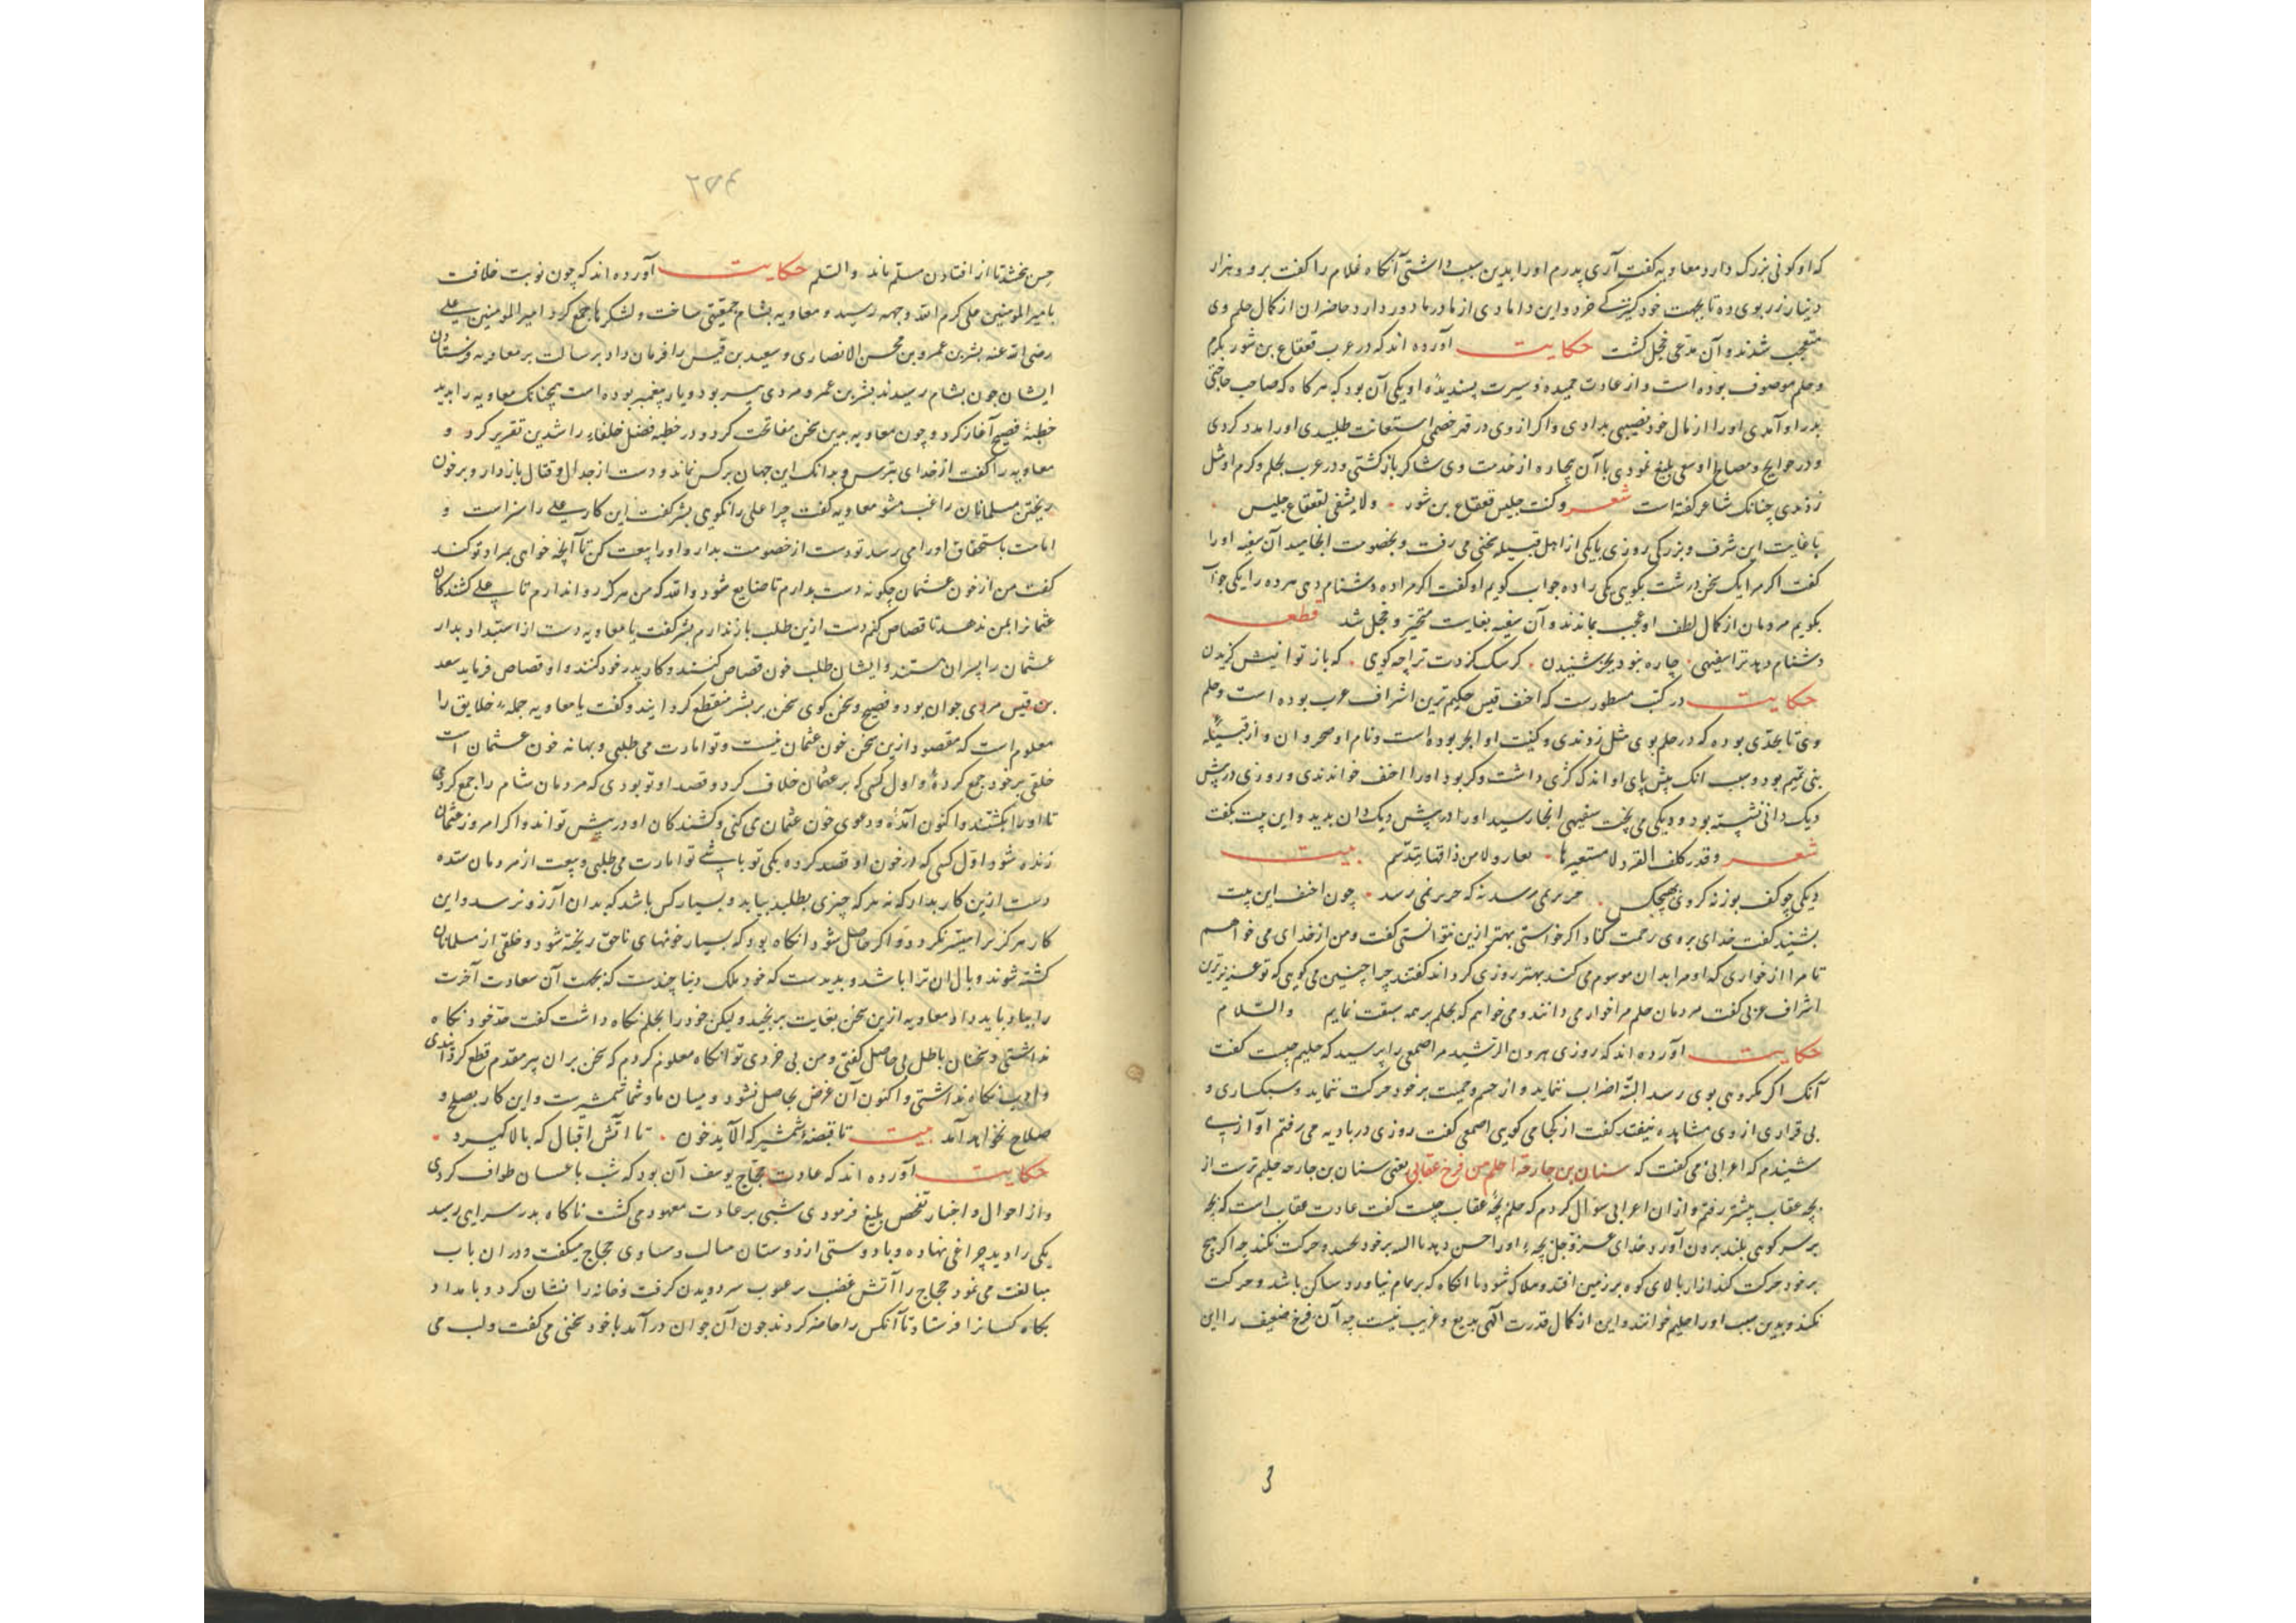 که او کونی بزرک دارد معاویه کفت آری پدرم او را بدین سبب داشتی آنکاه غلام را کفت برو و هزار
دینار زر بوی ده تا بجهت خود کنیزکی خرد و این دامادی از مادر ما دور دارد حاضران از کمال حلم وی
متعجب شدند و آن مدعی خجل کشت حکایت آورده اند که در عرب قعقاع بن شور بکرم
و حلم موصوف بوده است و از عادت حمیده و سیرت پسندیدۀ او یکی آن بود که هر کاه که صاحب حاجتی
بدر او آمدی او را از مال خود نصیبی بدادی و اکر از وی در قهر خصمی استعانت طلبیدی او را مدد کردی
و در حوایج و مصالح او سعی بلیغ نمودی تا آن بیچاره از خدمت وی شاکر بازکشتی و در عرب بحلم و کرم او مثل
زدندی چنانک شاعر کفته است شعر و کنت جلیس قعقاع بن شور ولا یشقی لقعقاع جلیس
با غایت این شرف و بزرکی روزی با یکی از اهل قبیله سخنی می رفت و بخصومت انجامید آن سفیه او را
کفت اکر مرا یک سخن درشت بکویی یکی را ده جواب کویم او کفت اکر مرا ده دشنام دهی هر ده را یکی جواب
نکویم مردمان از کمال لطف او عجب بماندند و آن سفیه بغایت متحیر و خجل شد قطعه
دشنام دهد ترا سفیهی چاره نبود بجز شنیدن کر سک کزدت ترا چه کوی که باز توانیش کزیدن
حکایت در کتب مسطورست که احنف قیس حکیم ترین اشراف عرب بوده است و حلم
وی تا بحدی بوده که در حلم بوی مثل زدندی و کنیت او ابو بحر بوده است و نام او صخر و ان و از قبیلۀ
بنی تمیم بود و سبب انک پیش پای او اندک کژی داشت و کر بود او را احنف خواندندی و روزی در پیش
دیک دانی نشسته بود و دیکی می پخت سفیهی انجا رسید او را در پیش دیک دان بدید و این بیت بکفت
شعر و قدر ککف القرد لا مستعیرها یعار ولا من ذاقها یتدسم بیت
دیکی چو کف بوزنه کردی بهیچکس هر بر نمی رسد نه که هر بر نمی رسد چون احنف این بیت
بشنید کفت خدای بر وی رحمت کناد اکر خواستی بهتر ازین نتوانستی کفت و من از خدای می خواهم
تا مرا از خواری که او مرا بدان موسوم می کند بهتر روزی کرداند کفتند چرا چنین می کویی که تو عزیزترین
اشراف عربی کفت مردمان حلم مرا خوار می دانند و می خواهم که بحلم بر همه سبقت نمایم والسلام
حکایت آورده اند که روزی هرون الرشید مر اصمعی را پرسید که حلیم چیست کفت
آنک اکر مکروهی بوی رسد البته اضراب ننماید و از حسم و حمیت بر خود حرکت ننماید و سبکساری و
بی قراری از وی مشاهده نیفتد کفت از کجا می کویی اصمعی کفت روزی در بادیه می رفتم آوازی
شنیدم که اعرابی می کفت که سنان بن جارحة احلم من فرخ عقابی یعنی سنان بن جارحه حلیم ترست از
بچه عقاب پیشتر رفتم و از ان اعرابی سؤال کردم که حلم بچۀ عقاب چیست کفت عادت عقاب است که بچه
بر سر کوهی بلند برون آورد خدای عز و جل بچۀ او را حس دهد تا البته بر خود نجنبد و حرکت نکند چه اکر هیچ
بر خود حرکت کند از ان بالای کوه بر زمین افتد و هلاک شود تا انکاه که پر تمام نیاورد ساکن باشد و حرکت
نکند و بدین سبب او را حلیم خوانند و این از کمال قدرت آلهی بدیع و غریب نیست چه آن فرخ ضعیف را این
۲۵۴
حس بخشد تا از افتادن مسلم ماند والسلم حکایت آورده اند که چون نوبت خلافت
بامیر المومنین علی کرم الله وجهه رسید و معاویه بشام جمعیتی ساخت و لشکرها جمع کرد امیر المومنین علی
رضی الله عنه بشر بن عمرو بن محسن الانصاری و سعید بن قیس را فرمان داد برسالت بر معاویه فرستادن
ایشان چون بشام رسیدند بشر بن عمرو مردی پیر بود و یار پیغمبر بوده است همچنانک معاویه را بدید
خطبۀ فصیح آغاز کرد و چون معاویه بدین سخن مفاتحت کرد و در خطبه فضل خلفاء راشدین تقریر کرد و
معاویه را کفت از خدای بترس و بدانک این جهان بر کس نماند و دست از جدال و قتال بازدار و بر خون
ریختن مسلمانان راغب مشو معاویه کفت چرا علی را نکویی بشر کفت این کار علی را سزاست و
امامت باستحقاق او را می رسد تو دست از خصومت بدار و او را بیعت کن تا آنچه خواهی بمراد تو کند
کفت من از خون عثمان چکونه دست بدارم تا ضایع شود والله که من هرکز روا ندارم تا علی کشندکان
عثمانرا بمن ندهد تا قصاص کنم دست ازین طلب باز ندارم بشر کفت یا معاویه دست از استبداد بدار
عثمان را پسران هستند و ایشان طلب خون قصاص کنند و کار پدر خود کنند و او قصاص فرماید سعد
بن قیس مردی جوان بود و فصیح و سخن کوی سخن بر بشر منقطع کردانید و کفت یا معاویه جملۀ خلایق را
معلوم است که مقصود ازین سخن خون عثمان نیست و تو امارت می طلبی و بهانه خون عثمان است
خلقی بر خود جمع کردۀ و اول کسی که بر عثمان خلاف کرد و قصد او تو بودی که مردمان شام را جمع کردی
تا او را بکشتند و اکنون آمدۀ و دعوی خون عثمان می کنی و کشندکان او در پیش تواند و اکر امروز عثمان
زنده شود اول کسی که در خون او قصد کرده یکی تو باشی تو امارت می طلبی و بیعت از مردمان ستده
دست ازین کار بدار که نه هر که چیزی بطلبد بیابد و بسیار کس باشد که بدان آرزو نرسد و این
کار هرکز ترا میسر نکردد و اکر حاصل شود انکاه بود که بسیار خونهای ناحق ریخته شود و خلقی از مسلمانان
کشته شوند و بال ان ترا باشد و بدیدست که خود ملک دنیا چندست که بجهت آن سعادت آخرت
را بباد باید داد معاویه ازین سخن بغایت برنجید ولیکن خود را بحلم نکاه داشت کفت حد خود نکاه
نداشتی و سخنان باطل بی حاصل کفتی و من بی خردی تو آنکاه معلوم کردم که سخن بران پیر مقدم قطع کردانیدی
و ادب نکاه نداشتی و اکنون آن غرض بحاصل نشود و میان ما و شما شمشیرست و این کار بصلح و
صلاح نخواهد آمد بیت تا قبضۀ شمشیر که آلاید خون تا آتش اقبال که بالا کیرد
حکایت آورده اند که عادت حجاج یوسف آن بود که شب با عسان طواف کردی
و از احوال و اخبار تفحص بلیغ فرمودی شبی بر عادت معهود می کشت ناکاه بدر سرایی رسید
یکی را دید چراغی نهاده و با دوستی از دوستان مثالب و مساوی حجاج میکفت و در ان باب
مبالغت می نمود حجاج را آتش غضب سر دویدن کرفت و خانه را نشان کرد و بامداد
بکاه کسانرا فرستاد تا آنکس را حاضر کردند چون آن جوان در آمد با خود سخنی می کفت و لب می